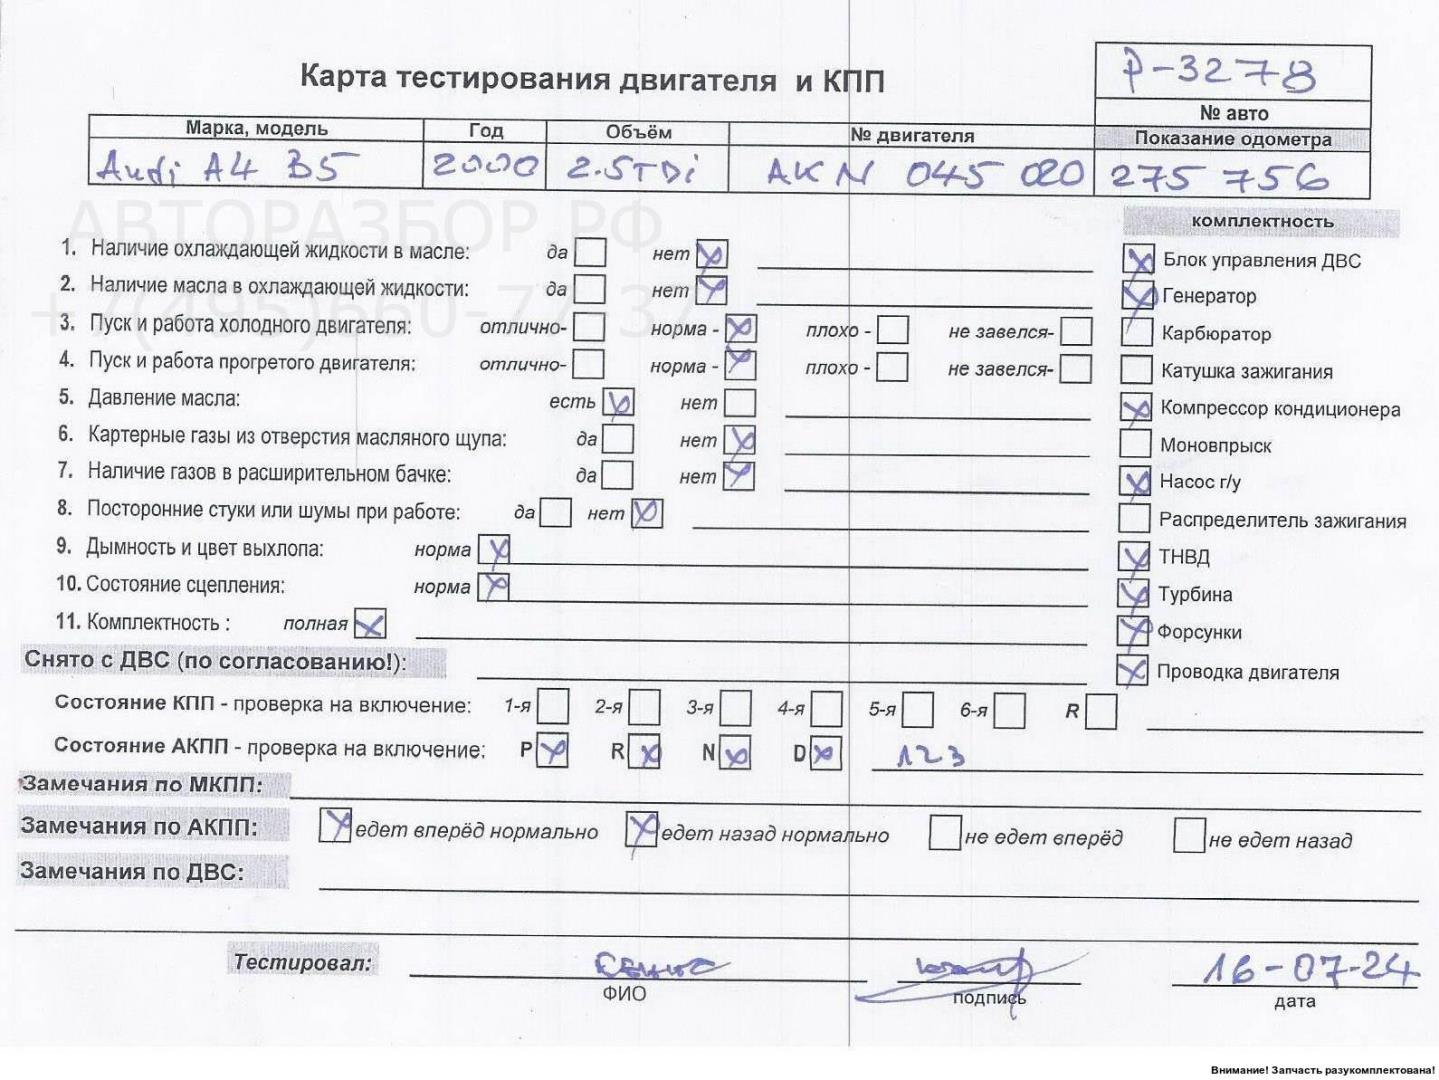 Р-3278
Карта тестирования двигателя и КПП
№ авто
Марка, модель Год Объём № двигателя Показание одометра
Audi A4 B5 2000 2.5TDi AKN 045 020 275 756
АВТОРАЗБОР.РФ
комплектность
1. Наличие охлаждающей жидкости в масле: да нет Блок управления ДВС
2. Наличие масла в охлаждающей жидкости: да нет Генератор
+7(495)660-77-37
3. Пуск и работа холодного двигателя: отлично- норма - плохо - не завелся- Карбюратор
4. Пуск и работа прогретого двигателя: отлично- норма - плохо - не завелся- Катушка зажигания
5. Давление масла: есть нет Компрессор кондиционера
6. Картерные газы из отверстия масляного щупа: да нет Моновпрыск
7. Наличие газов в расширительном бачке: да нет Насос г/у
8. Посторонние стуки или шумы при работе: да нет Распределитель зажигания
9. Дымность и цвет выхлопа: норма ТНВД
10. Состояние сцепления: норма Турбина
11. Комплектность : полная Форсунки
Снято с ДВС (по согласованию!): Проводка двигателя
Состояние КПП - проверка на включение: 1-я 2-я 3-я 4-я 5-я 6-я R
Состояние АКПП - проверка на включение: P R N D 123
Замечания по МКПП:
Замечания по АКПП: едет вперёд нормально едет назад нормально не едет вперёд не едет назад
Замечания по ДВС:
Тестировал: 16-07-24
ФИО подпись дата
Внимание! Запчасть разукомплектована!